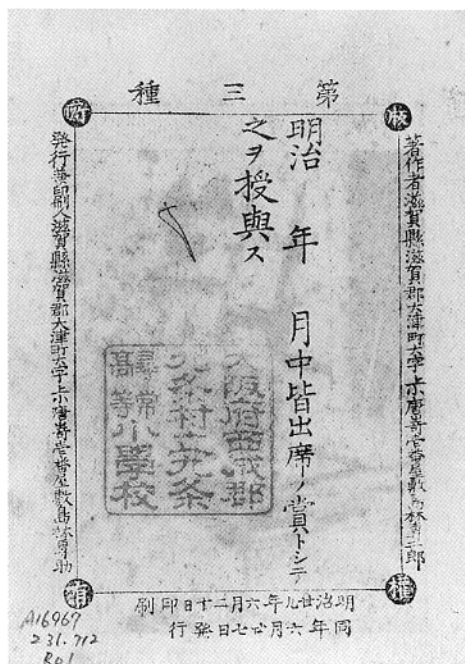 第三種
版權所有
著作者滋賀縣滋賀郡大津町大字上小唐嵜壱番屋敷島林専二郎
明治 年 月中皆出席ノ賞トシテ
之ヲ授與ス
大阪府西成郡
九条村立九条
尋常高等小學校
発行兼印刷人滋賀縣滋賀郡大津町大字上小唐嵜壱番屋敷島林専助
明治廿九年六月二十日印刷
同年六月廿七日発行
A16967
231.712
Ro1